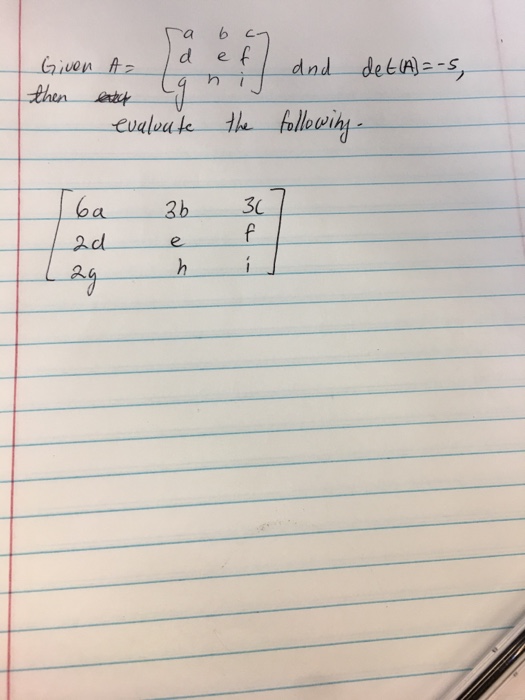 Given A = [a b c
d e f
g h i] and det(A) = -5,
then evaluate the following.
[6a 3b 3c
2d e f
2g h i]